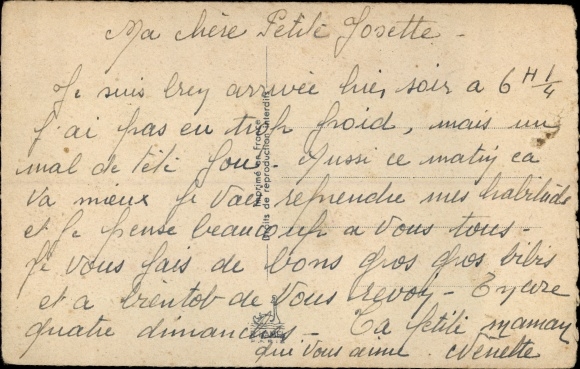 Ma chère Petite Josette -
Je suis bien arrivée hier soir a 6 H 1/4
j'ai pas eu trop froid, mais un
mal de tête fou. Aussi ce matin ça
va mieux je vais reprendre mes habitude
et je pense beaucoup a vous tous -
Je vous fais de bons gros gros bibis
et a bientot de vous revoir - Encore
quatre dimanches - Ta petite maman
qui vous aime Nénette
Imprimé en France
Droits de reproduction interdits